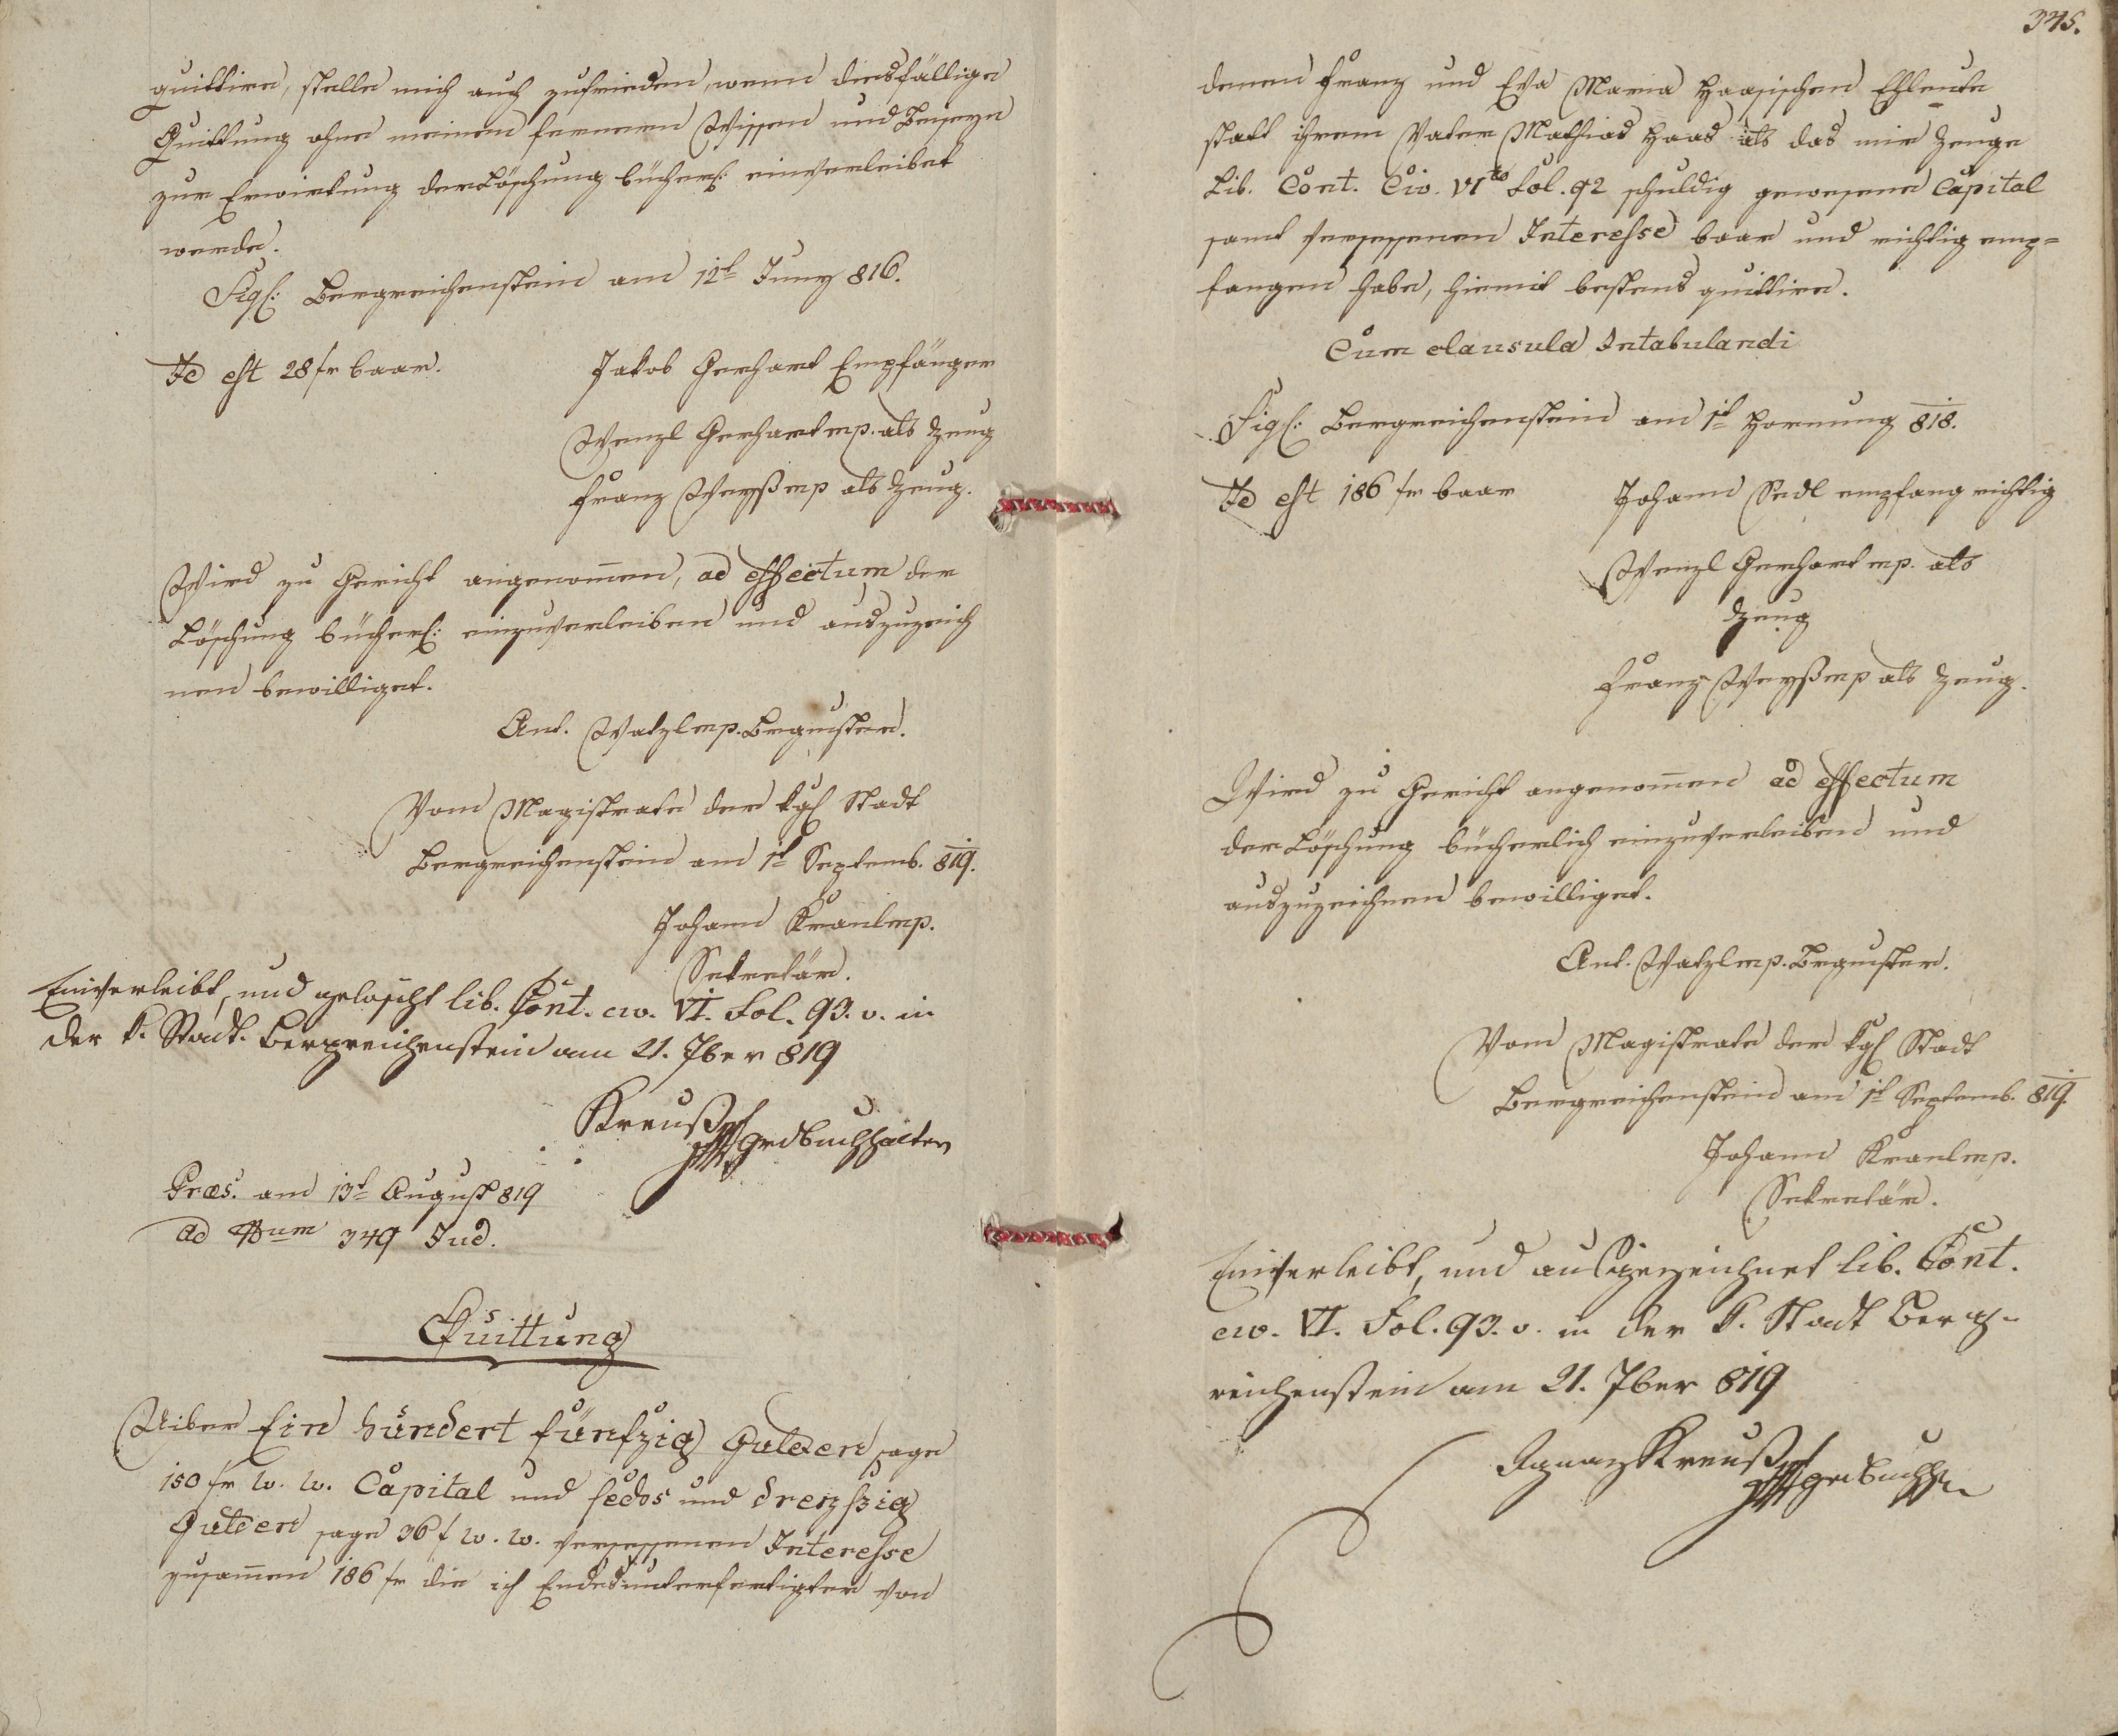 quittire, stelle mich auch zufrieden, wenn diesfällige
Quittung ohne meinem ferneren Wissen und Beyseyn
zur Erwirkung der Löschung bücherl: einverleibet
werde.
Sigl: Bergreichenstein am 12t Juny 816.
Id est 28 fr baar.
Jakob Gerhart Empfänger
Wenzl Gerhart mp. als Zeug
Franz Weyß mp als Zeug.
Wird zu Gericht angenom̅en, ad effectum der
Löschung bücherl: einzuverleiben und auszuzeich
nen bewilliget.
Ant. Watzl mp. Brgmster.
Vom Magistrate der kgl Stadt
Bergreichenstein am 1t Septemb. 819.
Johann Kranl mp.
Sekretär.
Einverleibt, und gelöscht lib. Cont. civ. VI. Fol. 93. v. in
der k. Stadt. Bergreichenstein am 21. 7ber 819
Kreuß mp
Grdbuchhalter
Præs. am 13t August 819
ad Num 349 Jud.
Quittung
Uiber Ein hundert fünfzig Gulden sage
150 fr w. w. Capital und sechs und dreyßig
Gulden sage 36 f w. w. versessenen Interesse
zusam̅en 186 fr die ich Endesunterfertigter von
345.
denen Franz und Eva Maria Haasischen Ehleute
statt ihrem Vater Mathias Haas als das mir Zeuge
Lib. Cont. Civ. VIto Fol. 92 schuldig gewesene Capital
samt versessenen Interesse baar und richtig emp=
fangen habe, hiemit bestens quittire.
Cum clausula Intabulandi
Sigl: Bergreichenstein am 1t Hornung 818.
Id est 186 fr baar
Johann Sedl empfang richtig
Wenzl Gerhart mp. als
Zeug
Franz Weyß mp als Zeug.
Wird zu Gericht angenom̅en ad effectum
der Löschung bücherlich einzuverleiben und
auszuzeichnen bewilliget.
Ant. Watzl mp. Brgmster.
Vom Magistrate der kgl Stadt
Bergreichenstein am 1t Septemb. 819.
Johann Kranl mp.
Sekretär.
Einverleibt, und ausgezeichnet lib. Cont.
civ. VI. Fol. 93. v. in der k. Stadt Berg-
reichenstein am 21. 7ber 819
Ignaz Kreuß mp
Grdbuchh